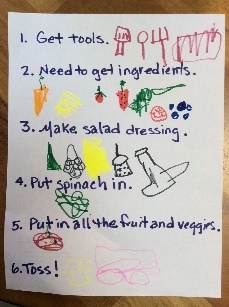 1. Get tools.
2. Need to get ingredients.
3. Make salad dressing.
4. Put spinach in.
5. Put in all the fruit and veggies.
6. Toss!